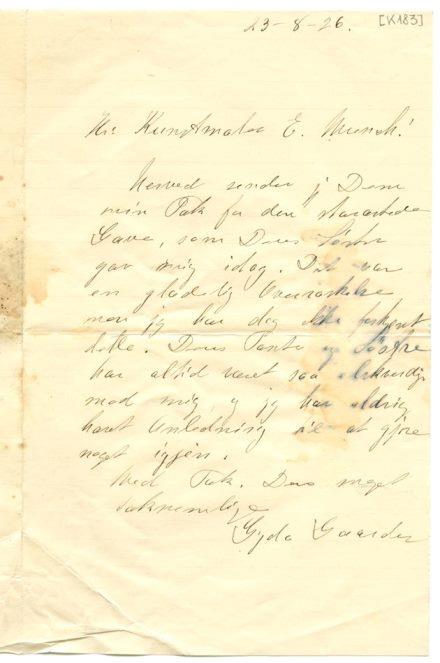 23-8-26.
[K183]
Hr. Kunstmaler E. Munch!
Herved sender j Dem
min Tak for den storartede
Gave, som Deres Søster
gav mig idag. Det var
en glædelig Overraskelse
men jeg har dog ikke fortjent
dette. Deres Tante og Søstre
har altid været saa elskverdige
mod mig, og jeg har aldrig
havt Anledning til at gjøre
noget igjen.
Med Tak. Deres meget
taknemlige
Gyda Gaarder